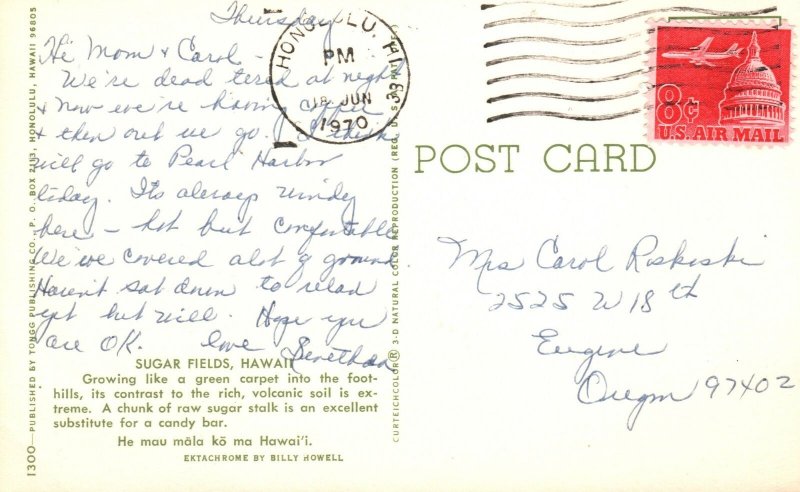 Thursday
Hi Mom & Carol -
We're dead tired at night
& now we're having coffee
& then out we go. I think
will go to Pearl Harbor
today. Its always windy
here - hot but comfortable
We've covered alot of ground
Haven't sat down to read
yet but will. Hope you
are OK. Love
SUGAR FIELDS, HAWAII
Growing like a green carpet into the foot-
hills, its contrast to the rich, volcanic soil is ex-
treme. A chunk of raw sugar stalk is an excellent
substitute for a candy bar.
He mau māla kō ma Hawai'i.
EKTACHROME BY BILLY HOWELL
1300—PUBLISHED BY TONGG PUBLISHING CO., P. O. BOX 2113, HONOLULU, HAWAII 96805
CURTEICHCOLOR® 3-D NATURAL COLOR REPRODUCTION (REG. U.S.A. PAT.
HONOLULU, HI
PM
18 JUN
1970
8¢
U.S. AIR MAIL
POST CARD
Mrs Carol Roskoski
2525 W 18th
Eugene
Oregon 97402